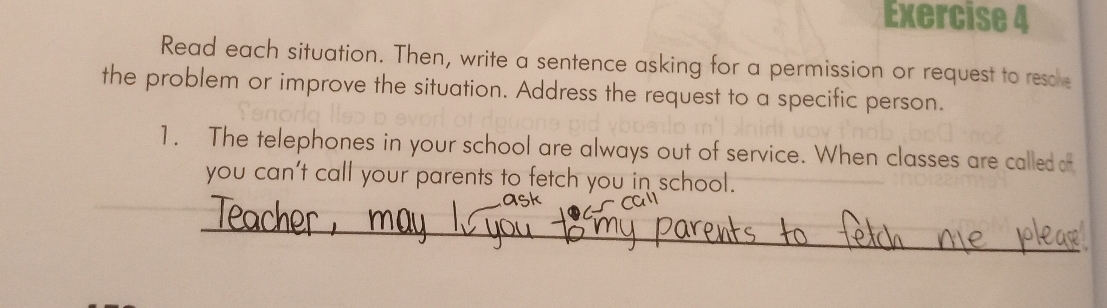 Exercise 4
Read each situation. Then, write a sentence asking for a permission or request to resolve
the problem or improve the situation. Address the request to a specific person.
1. The telephones in your school are always out of service. When classes are called off,
you can't call your parents to fetch you in school.
ask call
Teacher, may I you to my parents to fetch me please!